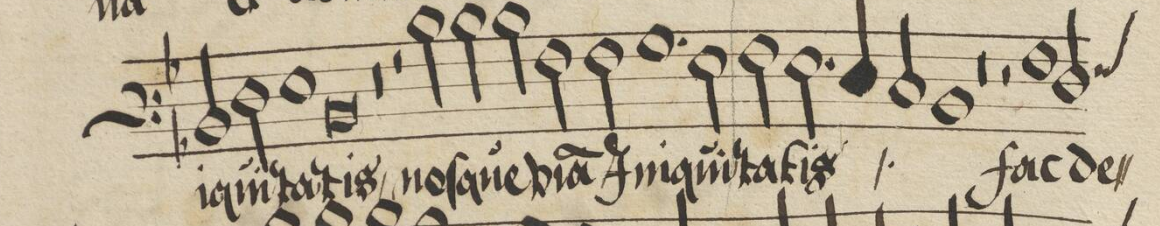 iquitatis, nosque viã Iniquitatis ⁒ fac de〃